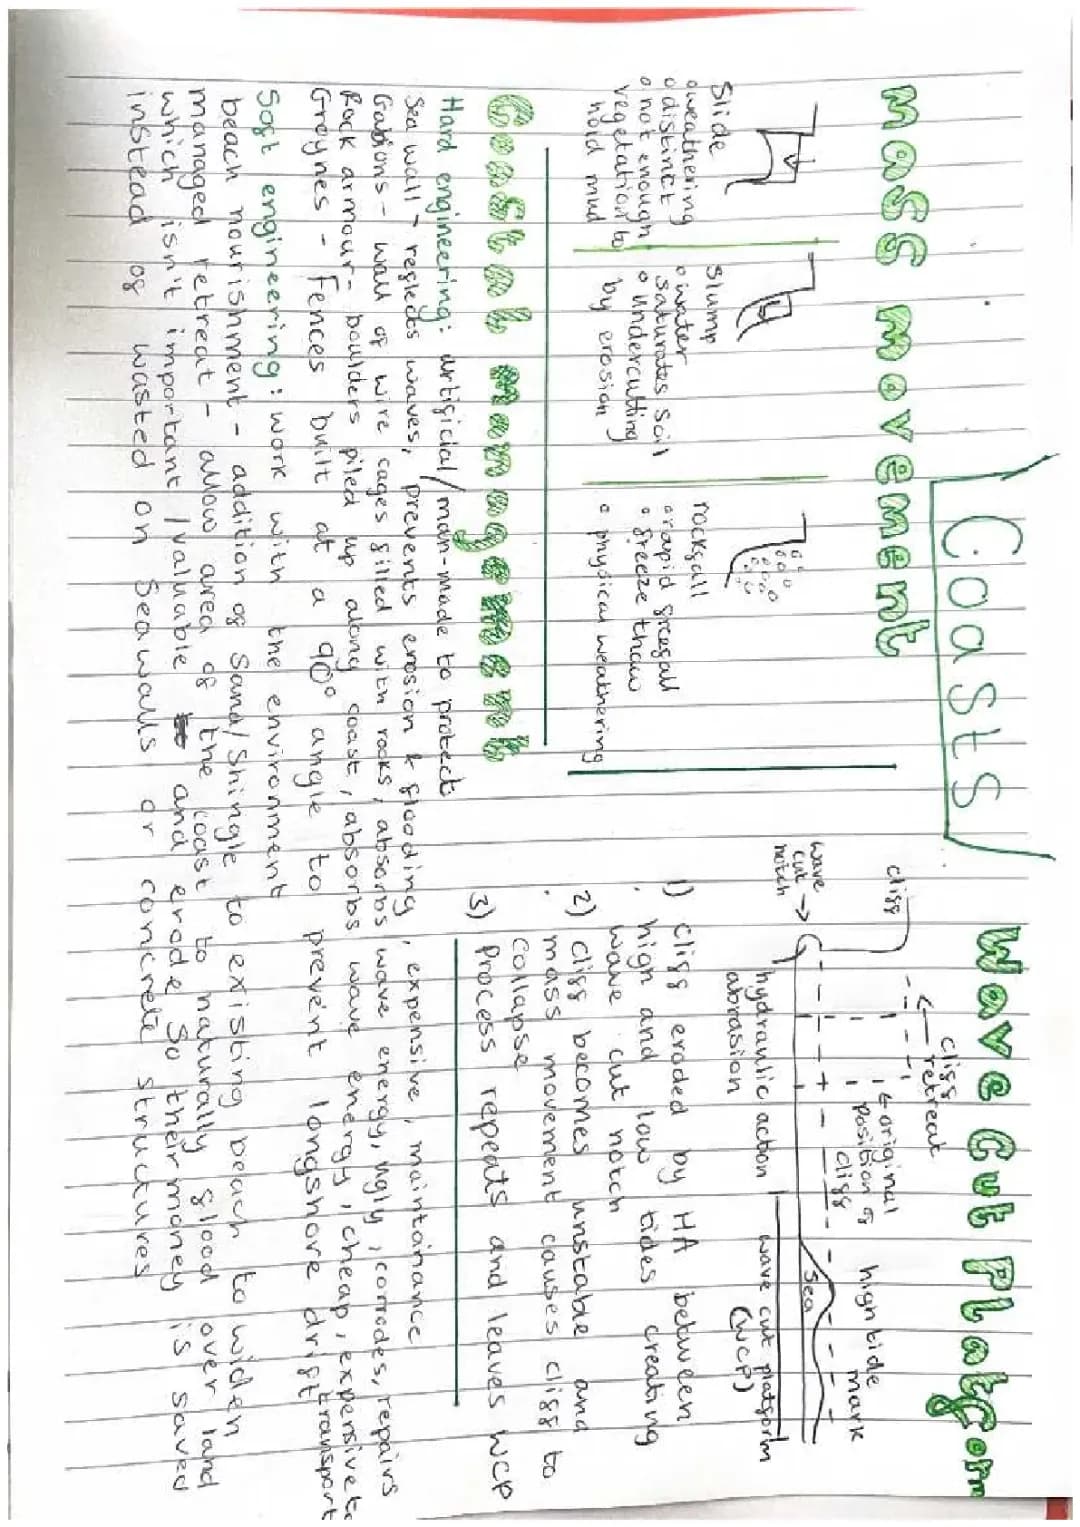 Coasts
mass movement
Slide
o weathering
o distinct
o not enough
vegetation to
hold mud
Slump
o water
saturates soil
o undercutting
by erosion
rockfall
o rapid freefall
o freeze thaw
o physical weathering
Wave Cut Platform
cliff
cliff
retreat
original
position of
cliff
high tide
mark
wave
cut
notch
Sea
hydraulic action
abrasion
wave cut platform
(WCP)
1) cliff eroded by HA between
high and low tides creating
wave cut notch
2) cliff becomes unstable and
mass movement causes cliff to
collapse
3) Process repeats and leaves WCP
Coastal management
Hard engineering: artificial/man-made to protect
Sea wall - reflects waves, prevents erosion & flooding, expensive, maintainance
Gabions - wall of wire cages filled with rocks, absorbs wave energy, ugly, corrodes, repairs
Rock armour - boulders piled up along coast, absorbs wave energy, cheap, expensive to
transport
Groynes - Fences built at a 90° angle to prevent longshore drift
Soft engineering: work with the environment
beach nourishment - addition of sand/shingle to existing beach to widen
managed retreat - allow area of the coast to naturally flood over land
which isn't important/valuable and erode. So their money is saved
instead of wasted on Sea walls or concrete structures